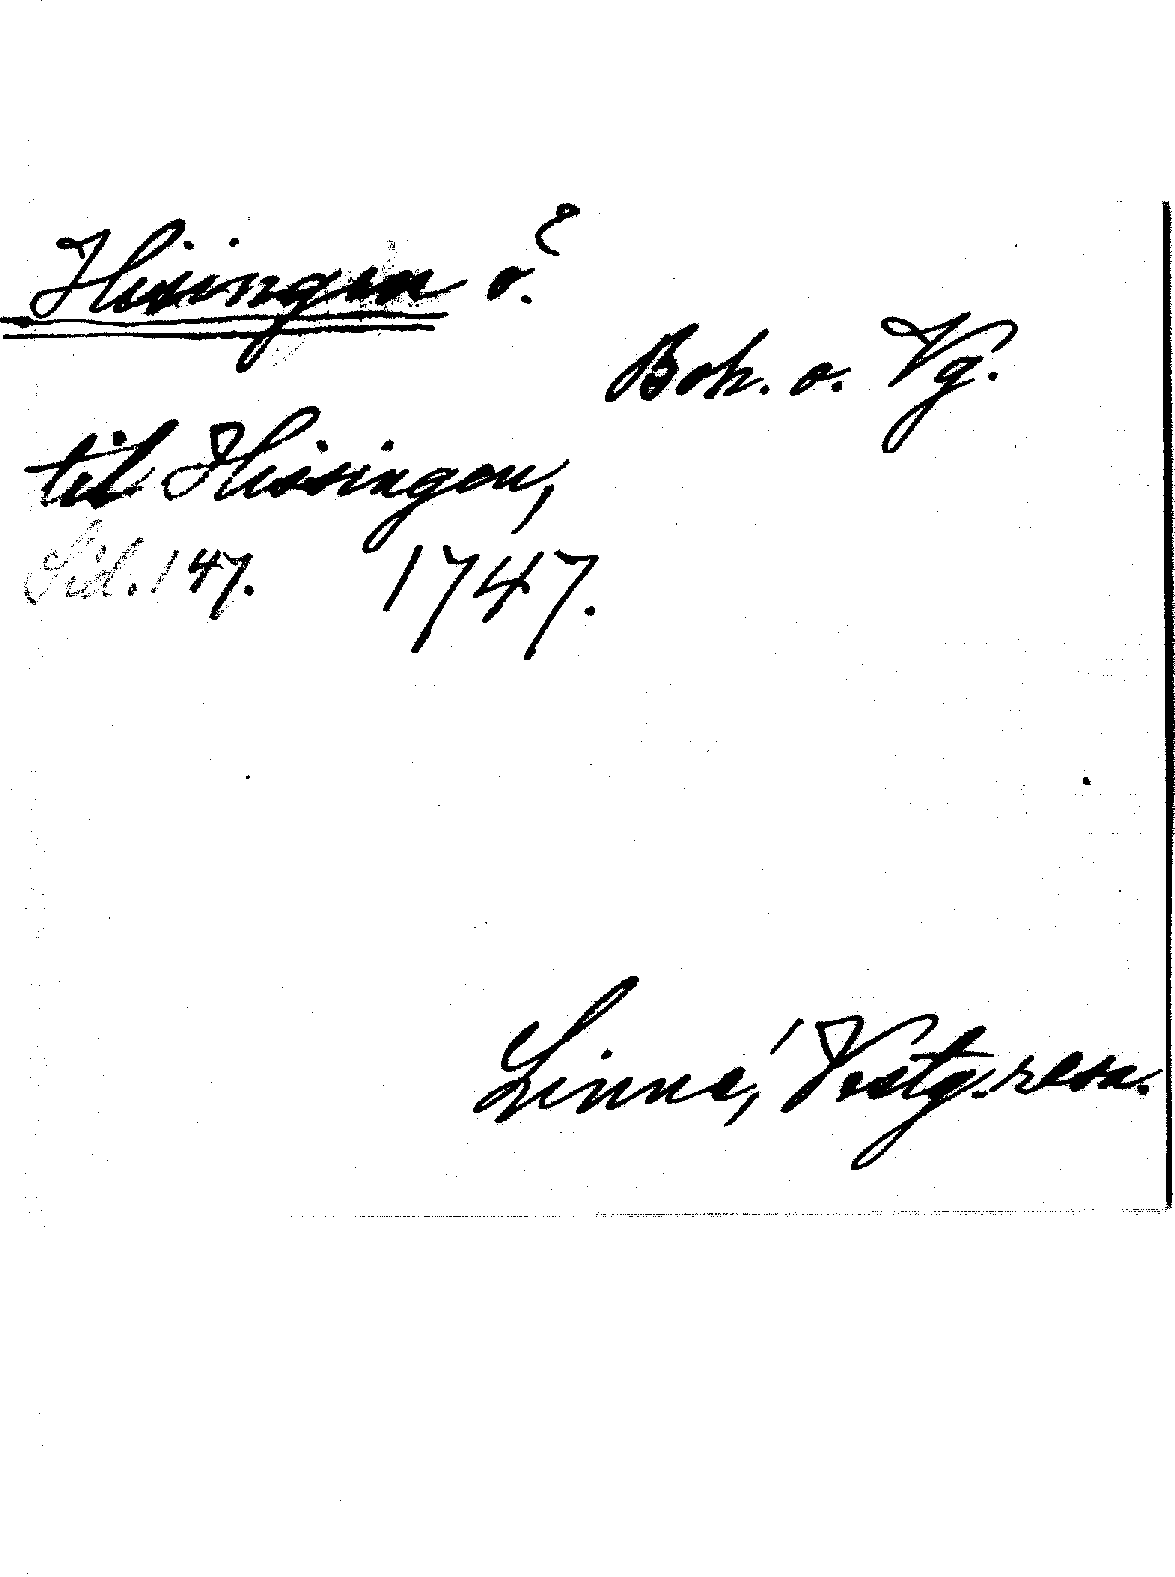 Hisingen ö.
Boh. o. Vg.
til Hissingen,
Sid. 147. 1747.
Linné, Vestg. resa.